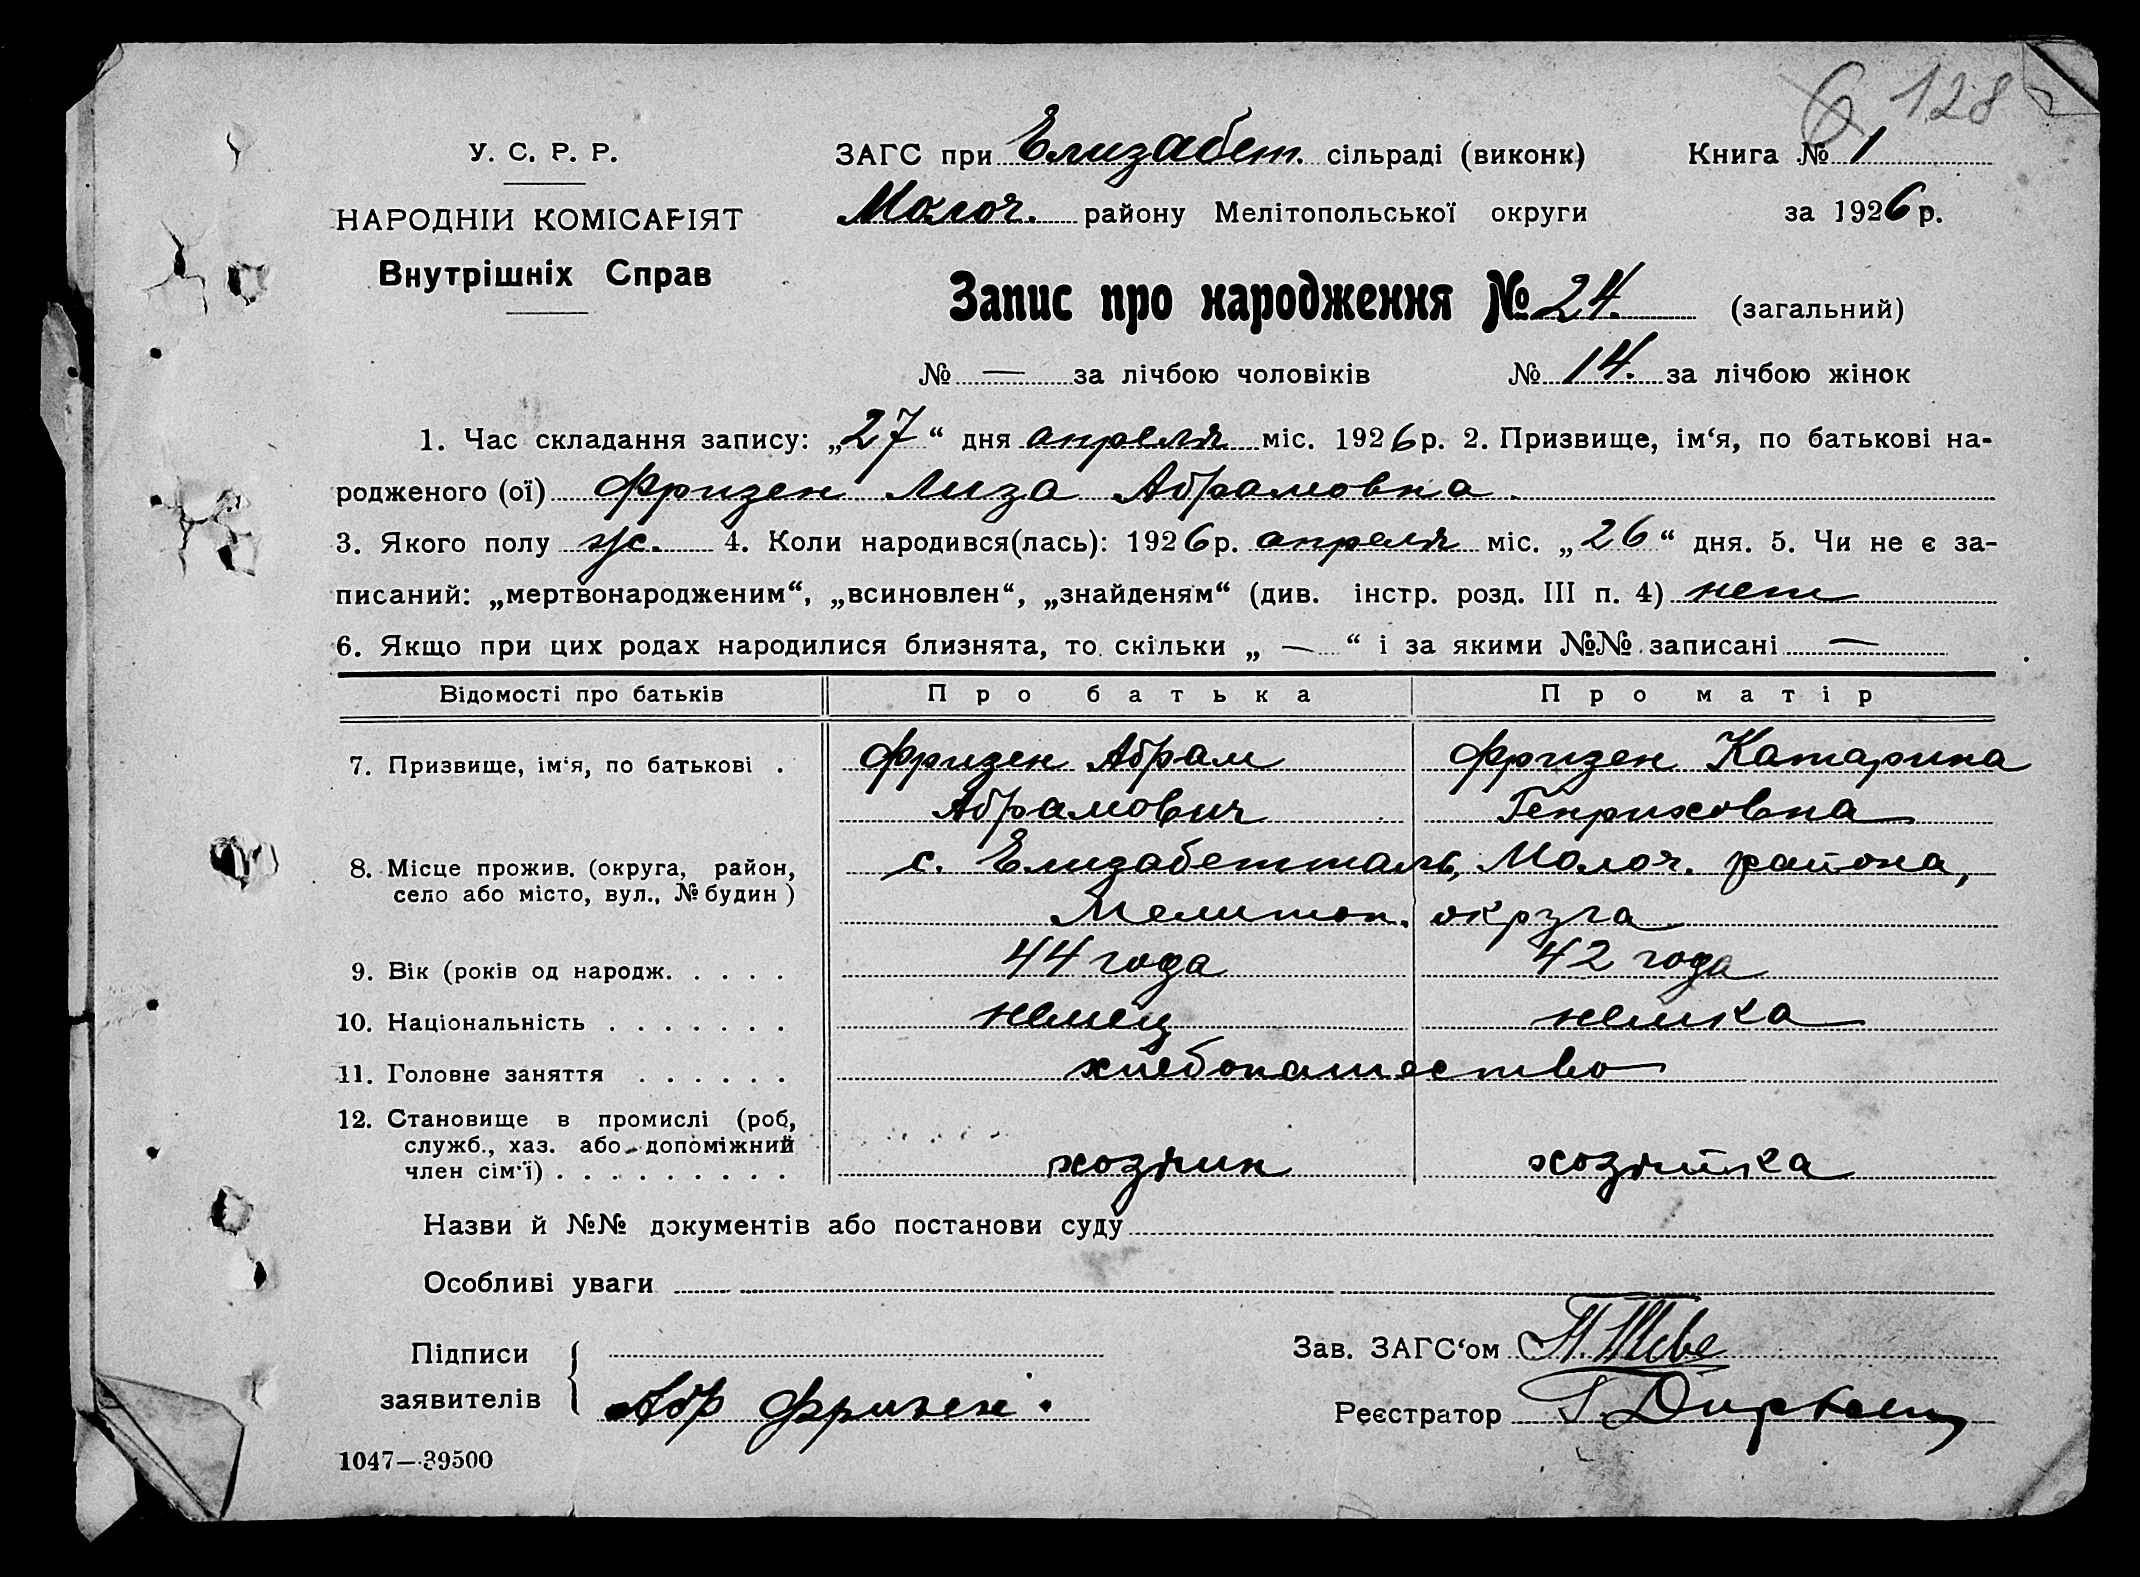 6 128
У. С. Р. Р.
НАРОДНІЙ КОМІСАРІЯТ
Внутрішніх Справ
ЗАГС при Елизабет. сільраді (виконк) Книга № 1
Молоч. району Мелітопольської округи за 1926 р.
Запис про народження № 24. (загальний)
№ — за лічбою чоловіків № 14. за лічбою жінок
1. Час складання запису: „27“ дня апреля міс. 1926 р. 2. Призвище, ім‘я, по батькові на-
родженого (ої) Фризен Лиза Абрамовна.
3. Якого полу ж. 4. Коли народився(лась): 1926 р. апреля міс. „26“ дня. 5. Чи не є за-
писаний: „мертвонародженим“, „всиновлен“, „знайденям“ (див. інстр. розд. III п. 4) нет
6. Якщо при цих родах народилися близнята, то скільки „ — “ і за якими №№ записані —
Відомості про батьків Про батька Про матір
7. Призвище, ім‘я, по батькові . Фризен Абрам Фризен Катарина
Абрамович Генриховна
8. Місце прожив. (округа, район, с. Елизабетталь, Молоч. района,
село або місто, вул., № будин ) Мелитоп. округа
9. Вік (років од народж. . . . . 44 года 42 года
10. Національність . . . . . . . немец немка
11. Головне заняття . . . . . . хлебопашество
12. Становище в промислі (роб,
служб., хаз. або допоміжний
член сім‘ї) . . . . . . . . . хозяин хозяйка
Назви й №№ документів або постанови суду
Особливі уваги
Підписи Зав. ЗАГС‘ом
заявителів Абр Фризен. Реєстратор Г. Дирксен
1047—39500